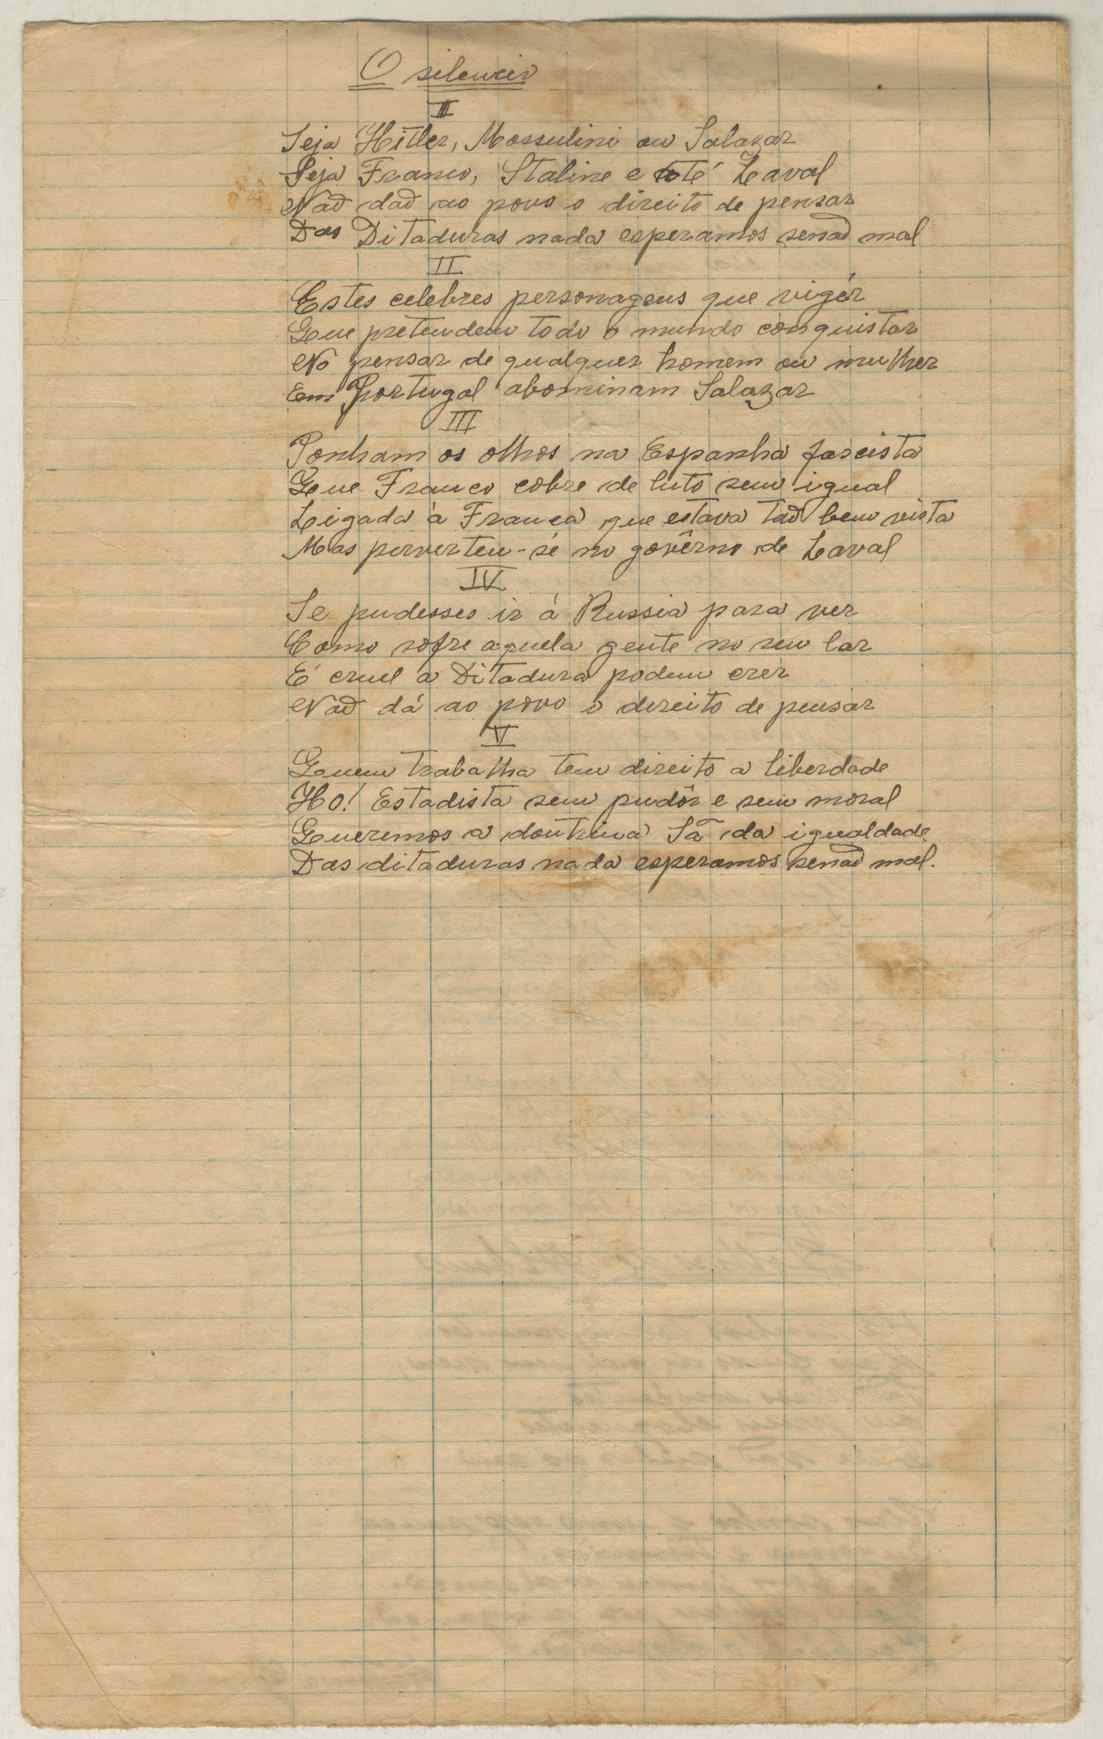 O silencio
I
Seja Hitler, Mossulini ou Salazar
Seja Franco, Staline e até Laval
Não dão ao povo o direito de pensar
Das Ditaduras nada esperamos senão mal
II
Estes celebres personagens que vigér
Que pretendem todo o mundo conquistar
No pensar de qualquer homem ou mulher
Em Portugal abominam Salazar
III
Ponham os olhos na Espanha fascista
Que Franco cobre de luto sem igual
Ligada á França que estava tão bem vista
Mas perverteu-se no govêrno de Laval
IV
Se pudesses ir á Russia para ver
Como sofre aquela gente no seu lar
É cruel a Ditadura podem crer
Não dá ao povo o direito de pensar
V
Quem trabalha tem direito a liberdade
HO! Estadista sem pudôr e sem moral
Queremos a doutrina Sã da igualdade
Das ditaduras nada esperamos senão mal.